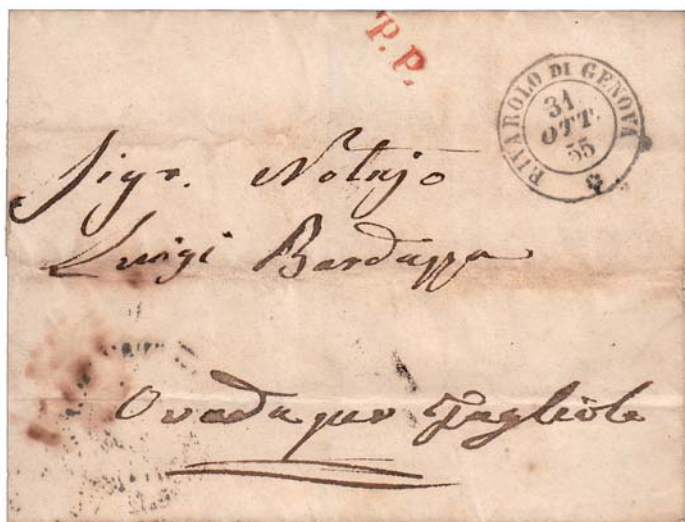 P.P.
RIVAROLO DI GENOVA
31
OTT.
55
Sigr. Notajo
Luigi Bardazza
Ovada per Tagliolo